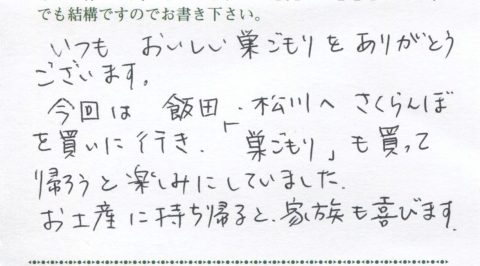 でも結構ですのでお書き下さい。
いつも おいしい巣ごもりをありがとう
ございます。
今回は 飯田・松川へ さくらんぼ
を買いに行き、「巣ごもり」も買って
帰ろうと楽しみにしていました。
お土産に持ち帰ると、家族も喜びます。